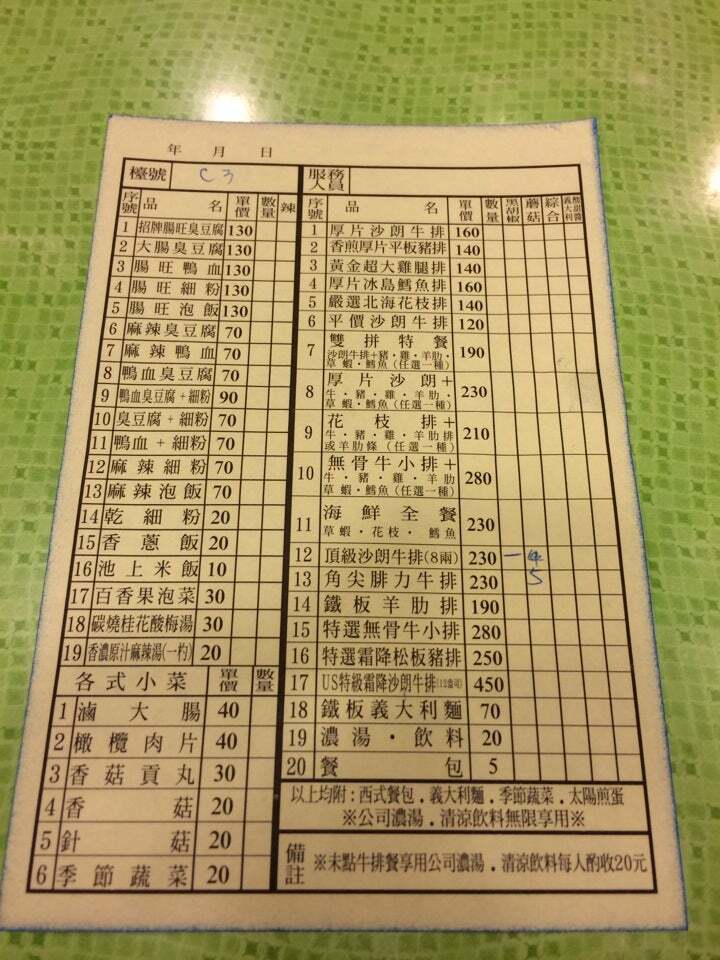 年 月 日
檯號 C3
序號 品名 單價 數量 辣
1 招牌腸旺臭豆腐 130
2 大腸臭豆腐 130
3 腸旺鴨血 130
4 腸旺細粉 130
5 腸旺泡飯 130
6 麻辣臭豆腐 70
7 麻辣鴨血 70
8 鴨血臭豆腐 70
9 鴨血臭豆腐+細粉 90
10 臭豆腐+細粉 70
11 鴨血+細粉 70
12 麻辣細粉 70
13 麻辣泡飯 70
14 乾細粉 20
15 香蔥飯 20
16 池上米飯 10
17 百香果泡菜 30
18 碳燒桂花酸梅湯 30
19 香濃原汁麻辣湯(一杓) 20
各式小菜 單價 數量
1 滷大腸 40
2 橄欖肉片 40
3 香菇貢丸 30
4 香菇 20
5 針菇 20
6 季節蔬菜 20
服務人員
序號 品名 單價 數量 黑胡椒 蘑菇 綜合 義大利 酸甜醬
1 厚片沙朗牛排 160
2 香煎厚片平板豬排 140
3 黃金超大雞腿排 140
4 厚片冰島鱈魚排 160
5 嚴選北海花枝排 140
6 平價沙朗牛排 120
7 雙拼特餐 190
沙朗牛排+豬・雞・羊肋・
草蝦・鱈魚(任選一種)
8 厚片沙朗+ 230
牛・豬・雞・羊肋・
草蝦・鱈魚(任選一種)
9 花枝排+ 210
牛・豬・雞・羊肋排
或羊肋條(任選一種)
10 無骨牛小排+ 280
牛・豬・雞・羊肋
草蝦・鱈魚(任選一種)
11 海鮮全餐 230
草蝦・花枝・鱈魚
12 頂級沙朗牛排(8兩) 230 一
13 角尖腓力牛排 230 5
14 鐵板羊肋排 190
15 特選無骨牛小排 280
16 特選霜降松板豬排 250
17 US特級霜降沙朗牛排(12盎司) 450
18 鐵板義大利麵 70
19 濃湯・飲料 20
20 餐包 5
以上均附:西式餐包.義大利麵.季節蔬菜.太陽煎蛋
※公司濃湯.清涼飲料無限享用※
備註 ※未點牛排餐享用公司濃湯.清涼飲料每人酌收20元